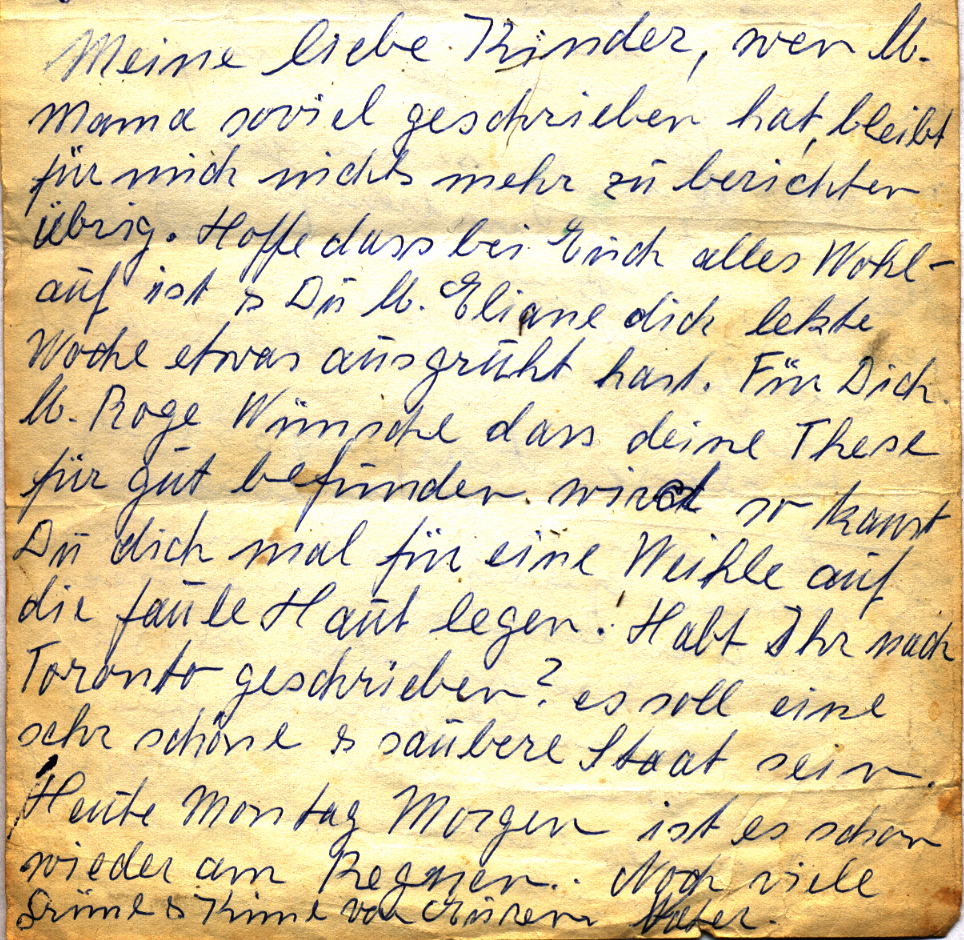 Meine liebe Kinder, wen lb.
Mama soviel geschrieben hat, bleibt
für mich nichts mehr zu berichten
übrig. Hoffe dass bei Euch alles Wohl-
auf ist & Du lb. Eliane dich letzte
Woche etwas ausgrüht hast. Für Dich
lb. Roge Wünsche dass deine These
für gut befunden wird so kanst
Du dich mal für eine Weihle auf
die faule Haut legen. Habt Ihr nach
Toronto geschrieben? es soll eine
sehr schöne & saubere Staat sein.
Heute Montag Morgen ist es schon
wieder am Regnen.. Noch viele
& von Eurem Vater.